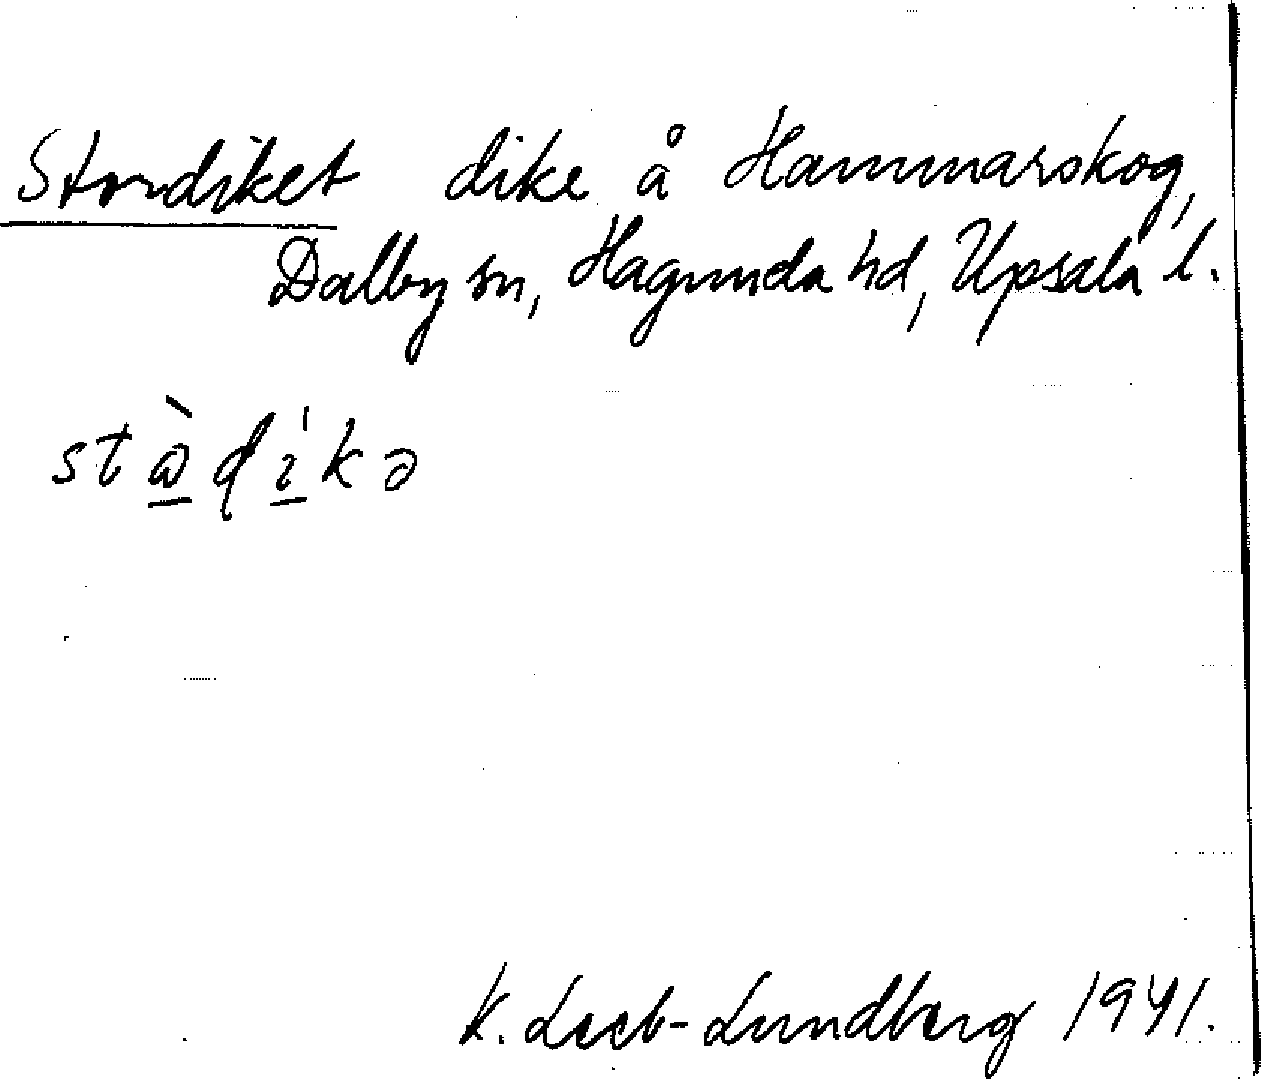 Stordiket dike å Hammarskog,
Dalby sn, Hagunda hd, Upsala l.
K. Leeb-Lundberg 1941.